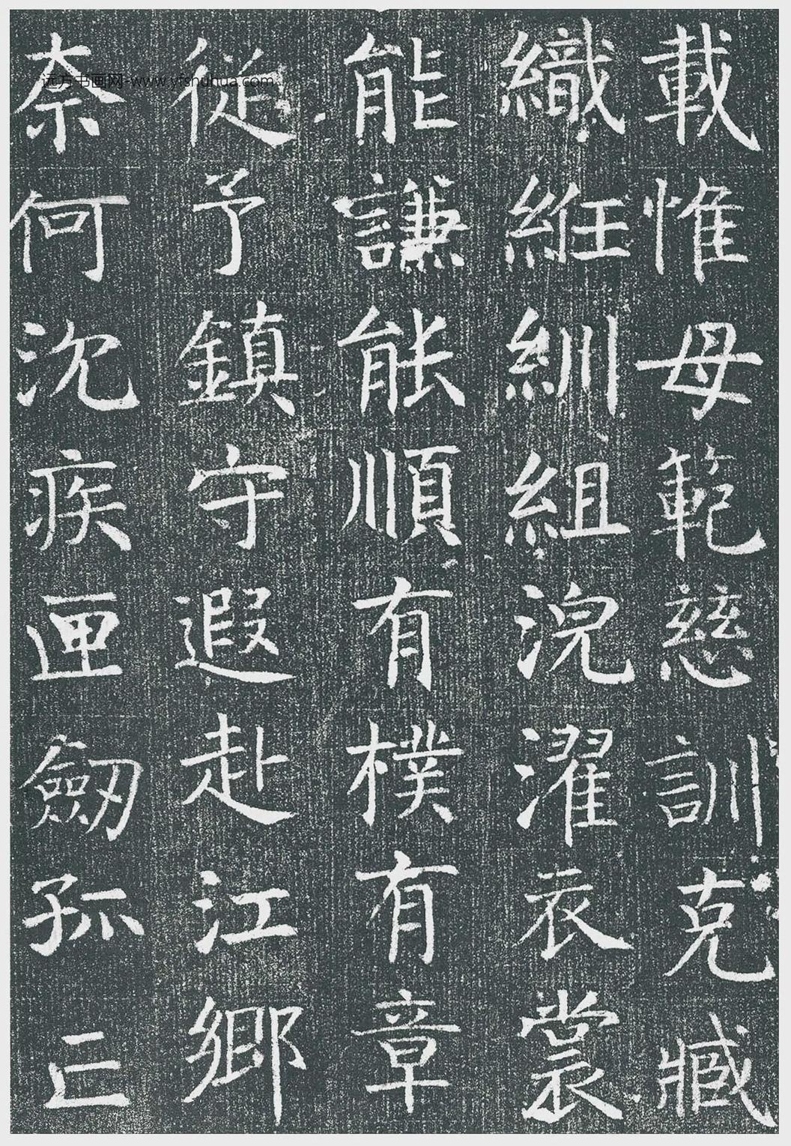 載惟母範慈訓克臧
織絍紃組浣濯衣裳
能謙能順有樸有章
從予鎮守遐赴江鄉
奈何沈疾匣劒孤亡
远方书画网-www.yfshuhua.com